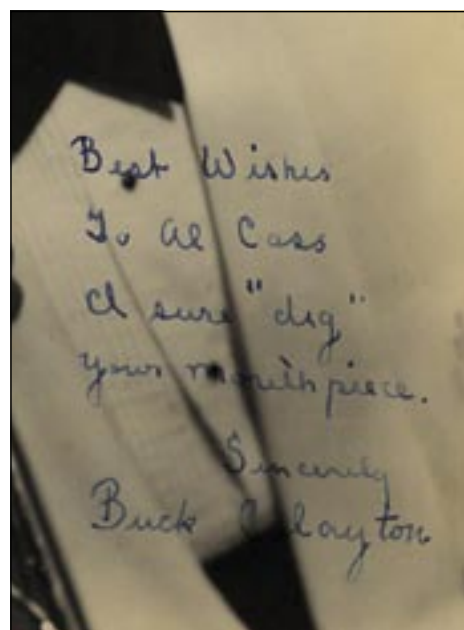 Best Wishes
To Al Cass
I sure "dig"
your mouthpiece.
Sincerely
Buck Clayton